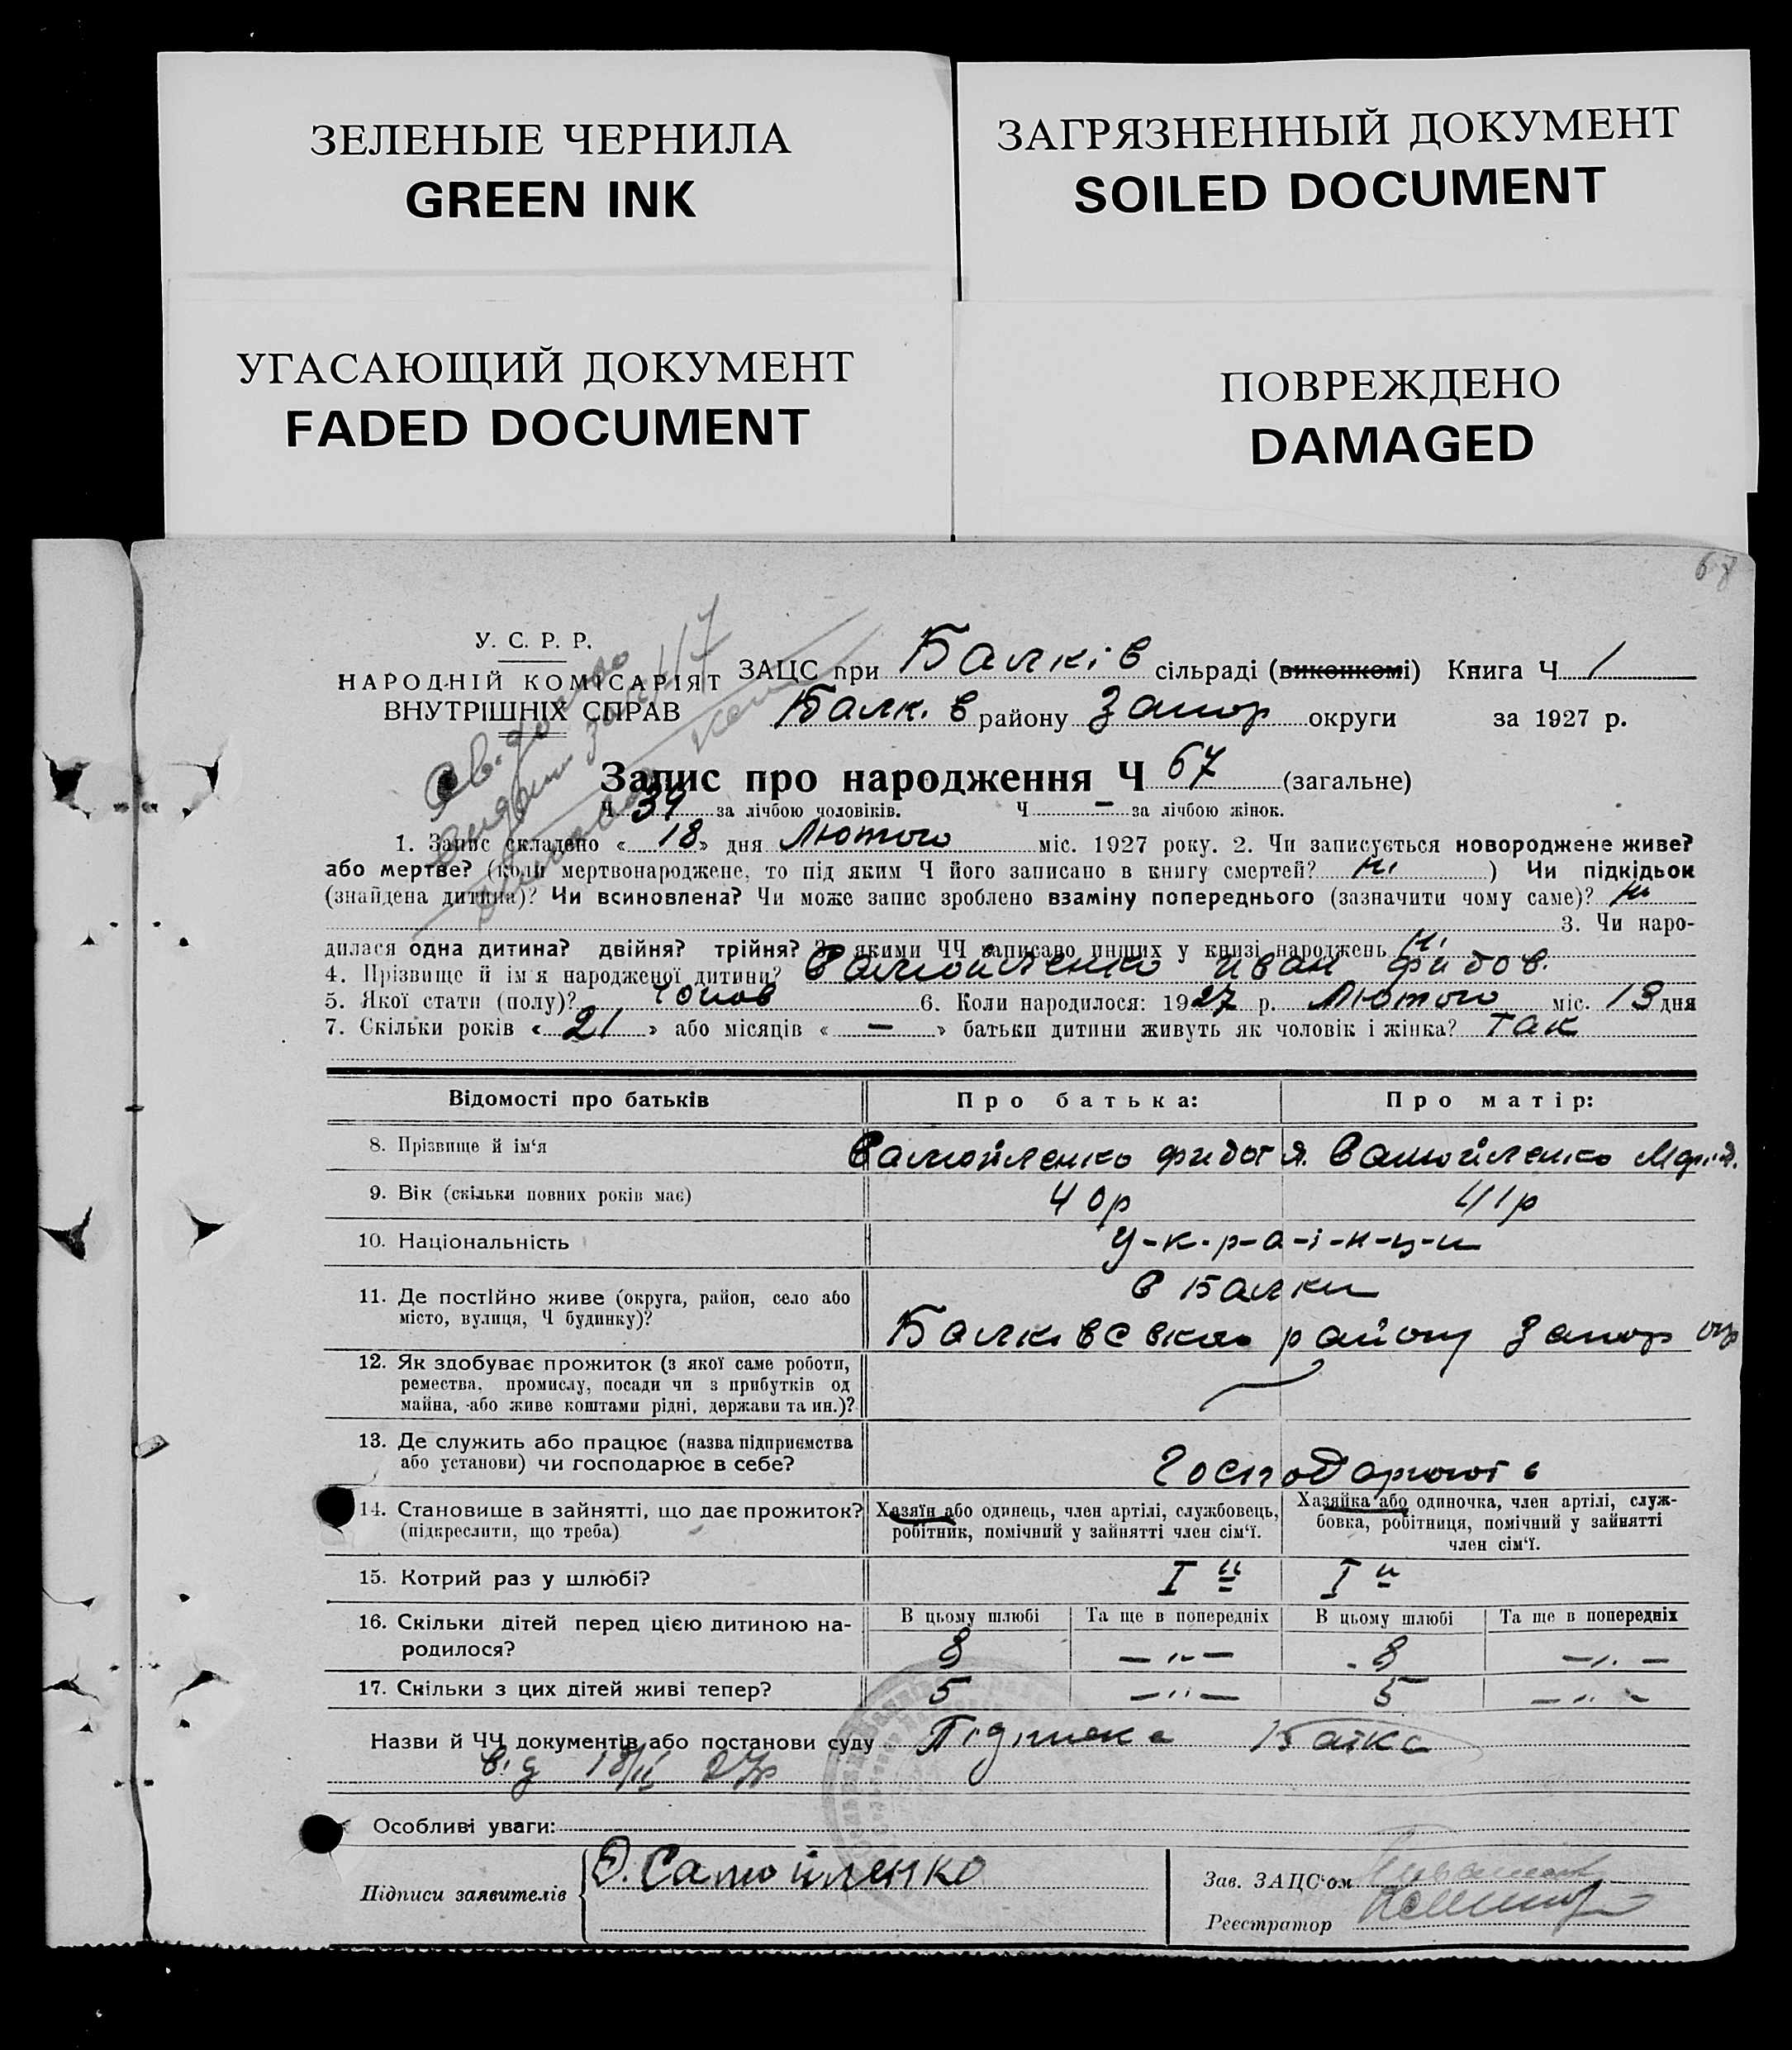 ЗЕЛЕНЫЕ ЧЕРНИЛА
GREEN INK
ЗАГРЯЗНЕННЫЙ ДОКУМЕНТ
SOILED DOCUMENT
УГАСАЮЩИЙ ДОКУМЕНТ
FADED DOCUMENT
ПОВРЕЖДЕНО
DAMAGED
68
У. С. Р. Р.
НАРОДНІЙ КОМІСАРІЯТ
ВНУТРІШНІХ СПРАВ
ЗАЦС при Балків сільраді (виконкомі) Книга Ч 1
Балк. в району Запор округи за 1927 р.
Запис про народження Ч 67 (загальне)
Ч 39 за лічбою чоловіків. Ч — за лічбою жінок.
1. Запис складено « 18 » дня Лютого міс. 1927 року. 2. Чи записується новороджене живе?
або мертве? (коли мертвонароджене, то під яким Ч його записано в книгу смертей? ні ) Чи підкідьок
(знайдена дитина)? Чи всиновлена? Чи може запис зроблено взаміну попереднього (зазначити чому саме)? ні
3. Чи наро-
дилася одна дитина? двійня? трійня? якими ЧЧ записано инших у книзі народжень ні
4. Прізвище й ім'я народженої дитини? Самойленко Иван Фидов.
5. Якої стати (полу)? чолов 6. Коли народилося: 1927 р. Лютого міс. 13 дня
7. Скільки років « 21 » або місяців « — » батьки дитини живуть як чоловік і жінка? так
Відомості про батьків
Про батька:
Про матір:
8. Прізвище й ім'я
Самойленко Фидот Я.
Самойленко
9. Вік (скільки повних років має)
40р
41р
10. Національність
У-к-р-а-ї-н-ц-и
11. Де постійно живе (округа, район, село або
місто, вулиця, Ч будинку)?
с Балки
Балківського району Запор окр
12. Як здобуває прожиток (з якої саме роботи,
ремества, промислу, посади чи з прибутків од
майна, або живе коштами рідні, держави та ин.)?
13. Де служить або працює (назва підприємства
або установи) чи господарює в себе?
Господарюють
14. Становище в зайнятті, що дає прожиток?
(підкреслити, що треба)
Хазяїн або одинець, член артілі, службовець,
робітник, помічний у зайнятті член сім'ї.
Хазяйка або одиночка, член артілі, служ-
бовка, робітниця, помічний у зайнятті
член сім'ї.
15. Котрий раз у шлюбі?
I й
I й
16. Скільки дітей перед цією дитиною на-
родилося?
В цьому шлюбі
Та ще в попередніх
В цьому шлюбі
Та ще в попередніх
8
— " —
8
— " —
17. Скільки з цих дітей живі тепер?
5
— " —
5
— " —
Назви й ЧЧ документів або постанови суду Підписка Батка
від 18/II 27р
Особливі уваги:
Підписи заявителів
Ф. Самойленко
Зав. ЗАЦС'ом
Реєстратор